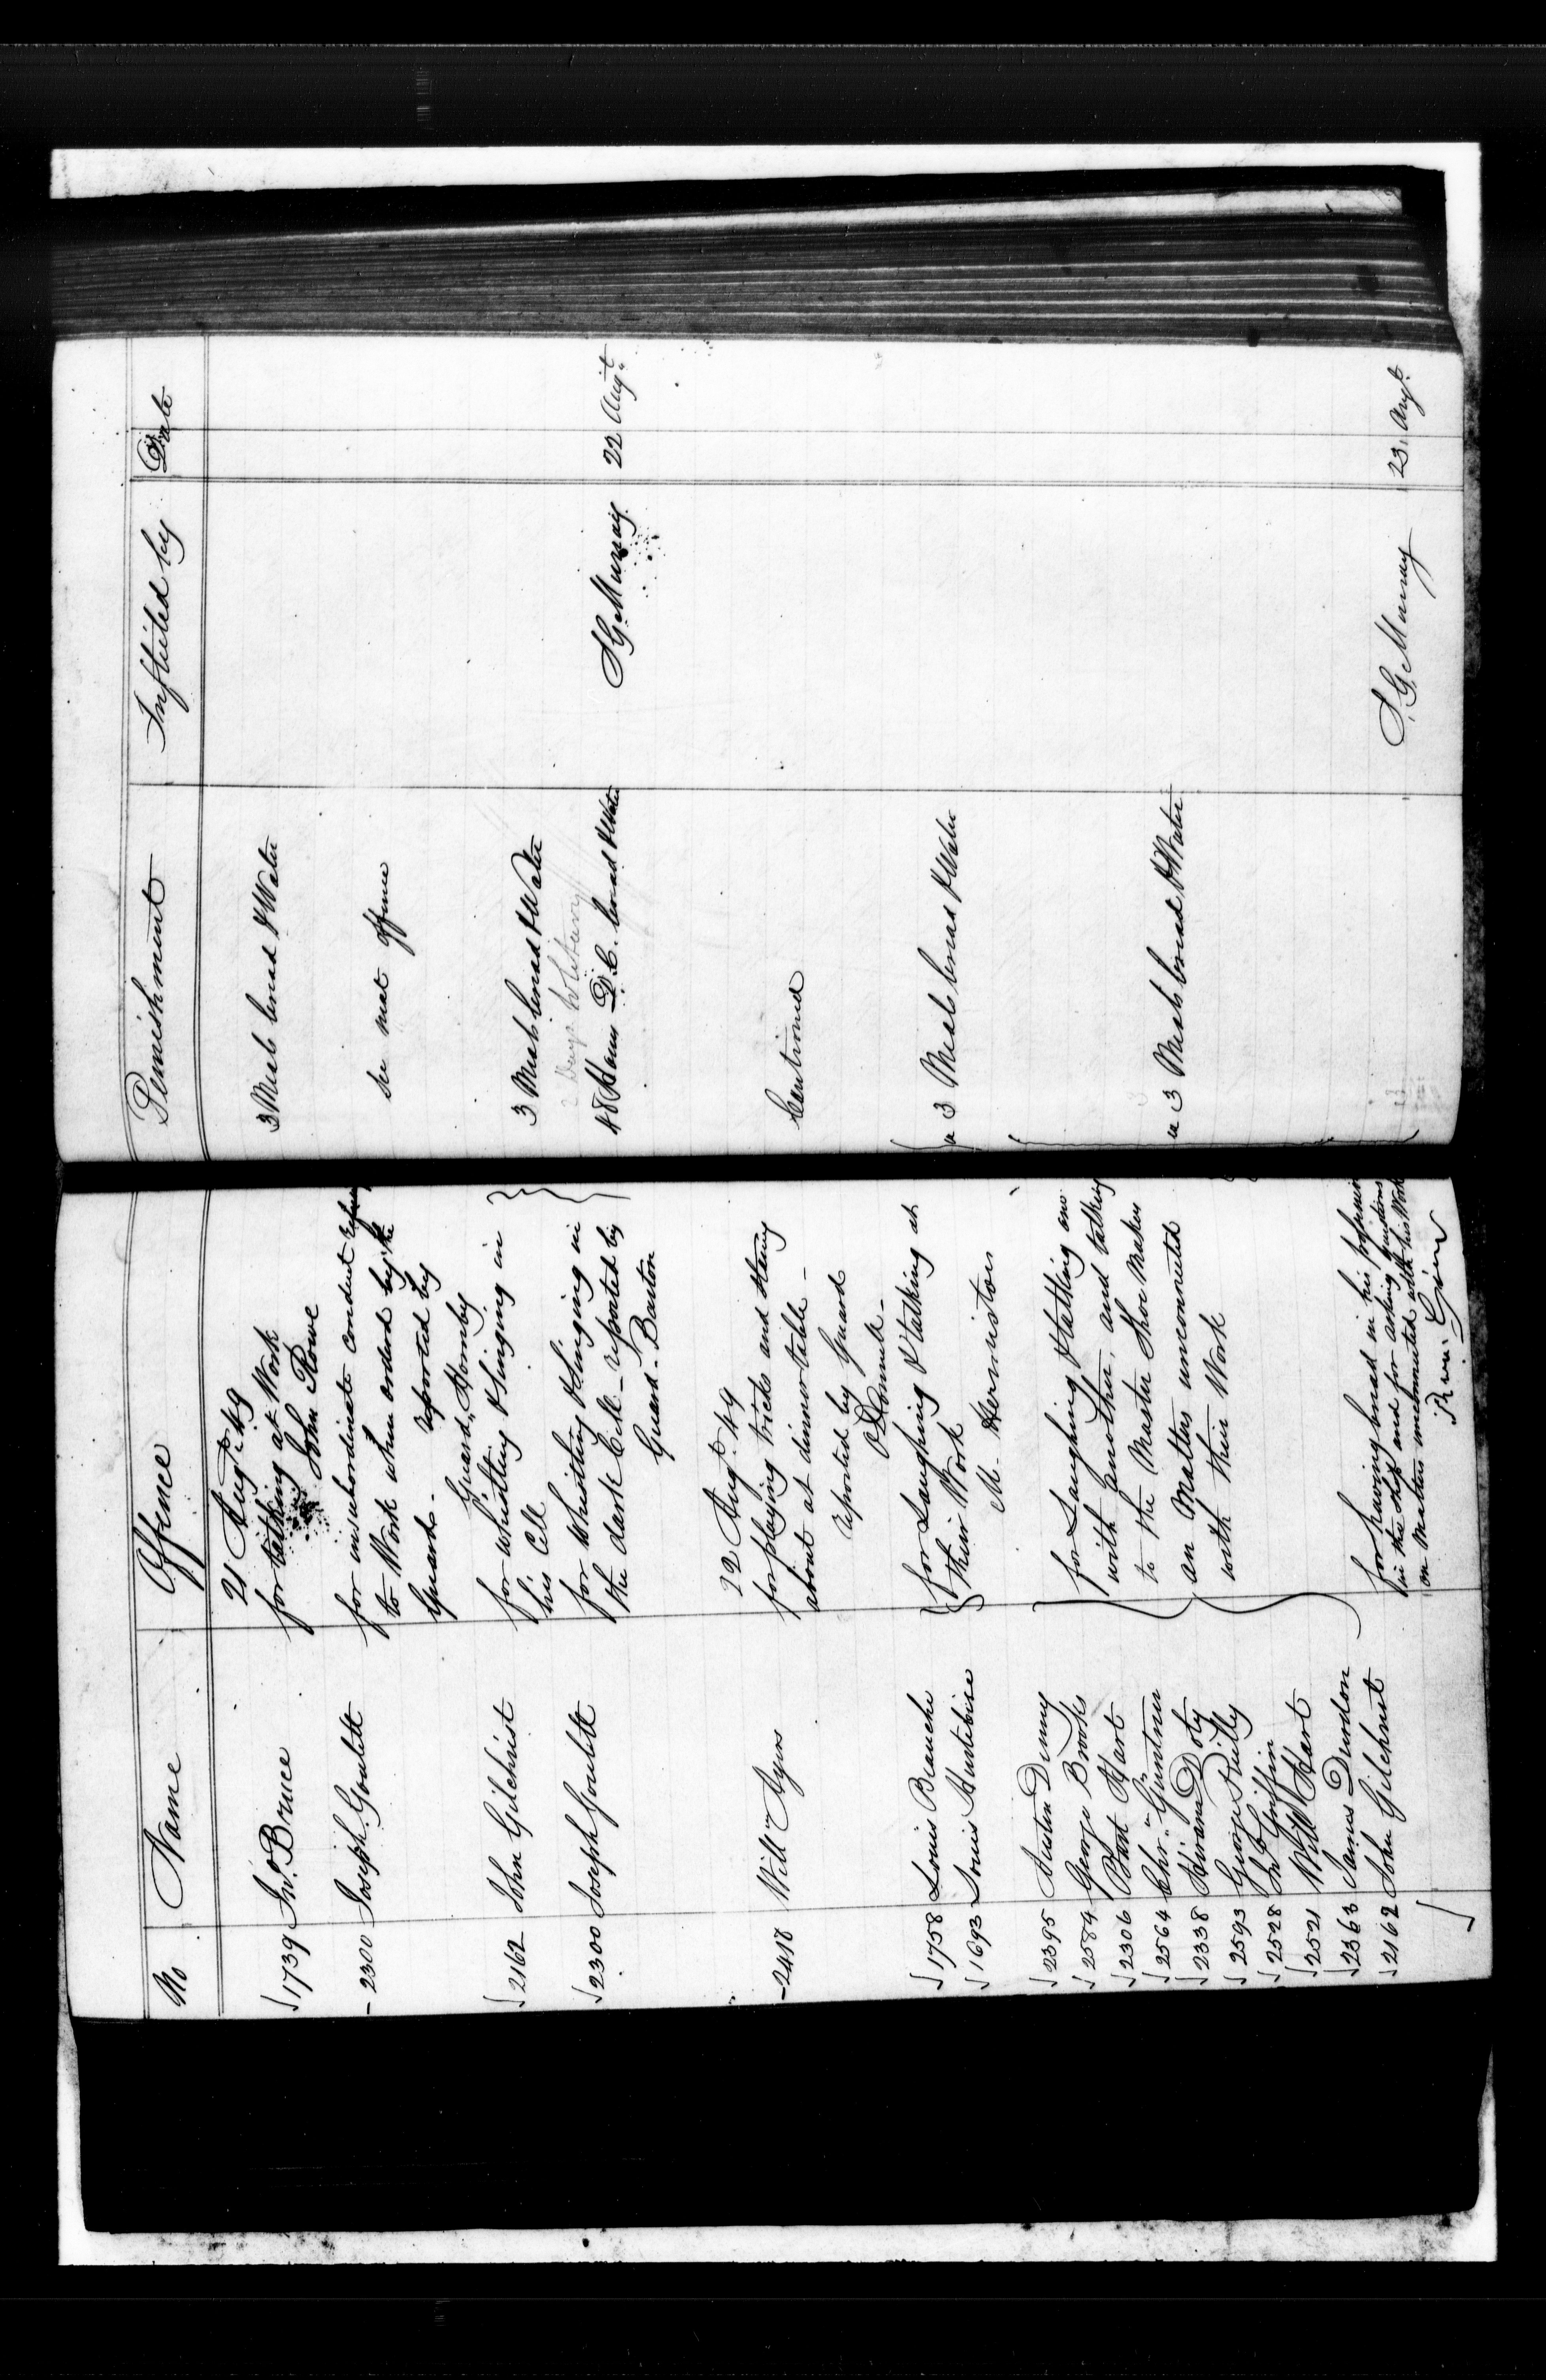 No Name Offence Punishment Inflicted by Date
21 Augt. 49
1739 Jno. Bruce for talking at Work 3 Meals bread & Water
John Rowe
2300 Joseph Goulett for insubordinate conduct refusing see next offence
to Work when ordered by the
Guard - reported by
Guard, Hornby
2162 John Gilchrist for whistling & singing in 3 Meals bread & Water
his Cell
2 Days Solitary
2300 Joseph Goulett for Whistling & Singing in 48 Hours D.C. bread & Water S G. Murray 22 Augt.
the dark Cell - reported by
Guard - Barton
22 Augt. 49
2418 Willm Ayers for playing tricks and Cautioned
about at dinner table -
reported by Guard
O'Donnell -
1758 Louis Branche for Laughing & talking at a 3 Meals bread & Water
1693 Louis Hurtibise their Work
M. Hermiston
2395 Austin Denny for Laughing & talking one
2584 George Brooks with another, and talking
2306 Bart Hart to the Master Shoe Maker
2564 Chrn. Guntner on Matters unconnected a 3 Meals bread & Water
2338 Hiram Doty with their Work
2593 George Reilly
2528 Griffin
2521 Will Hart
2363 James Durdon
2162 John Gilchrist for having bread in his possession S, G, Murray 23, Augt.
in the and for asking questions
on matters unconnected with his Work